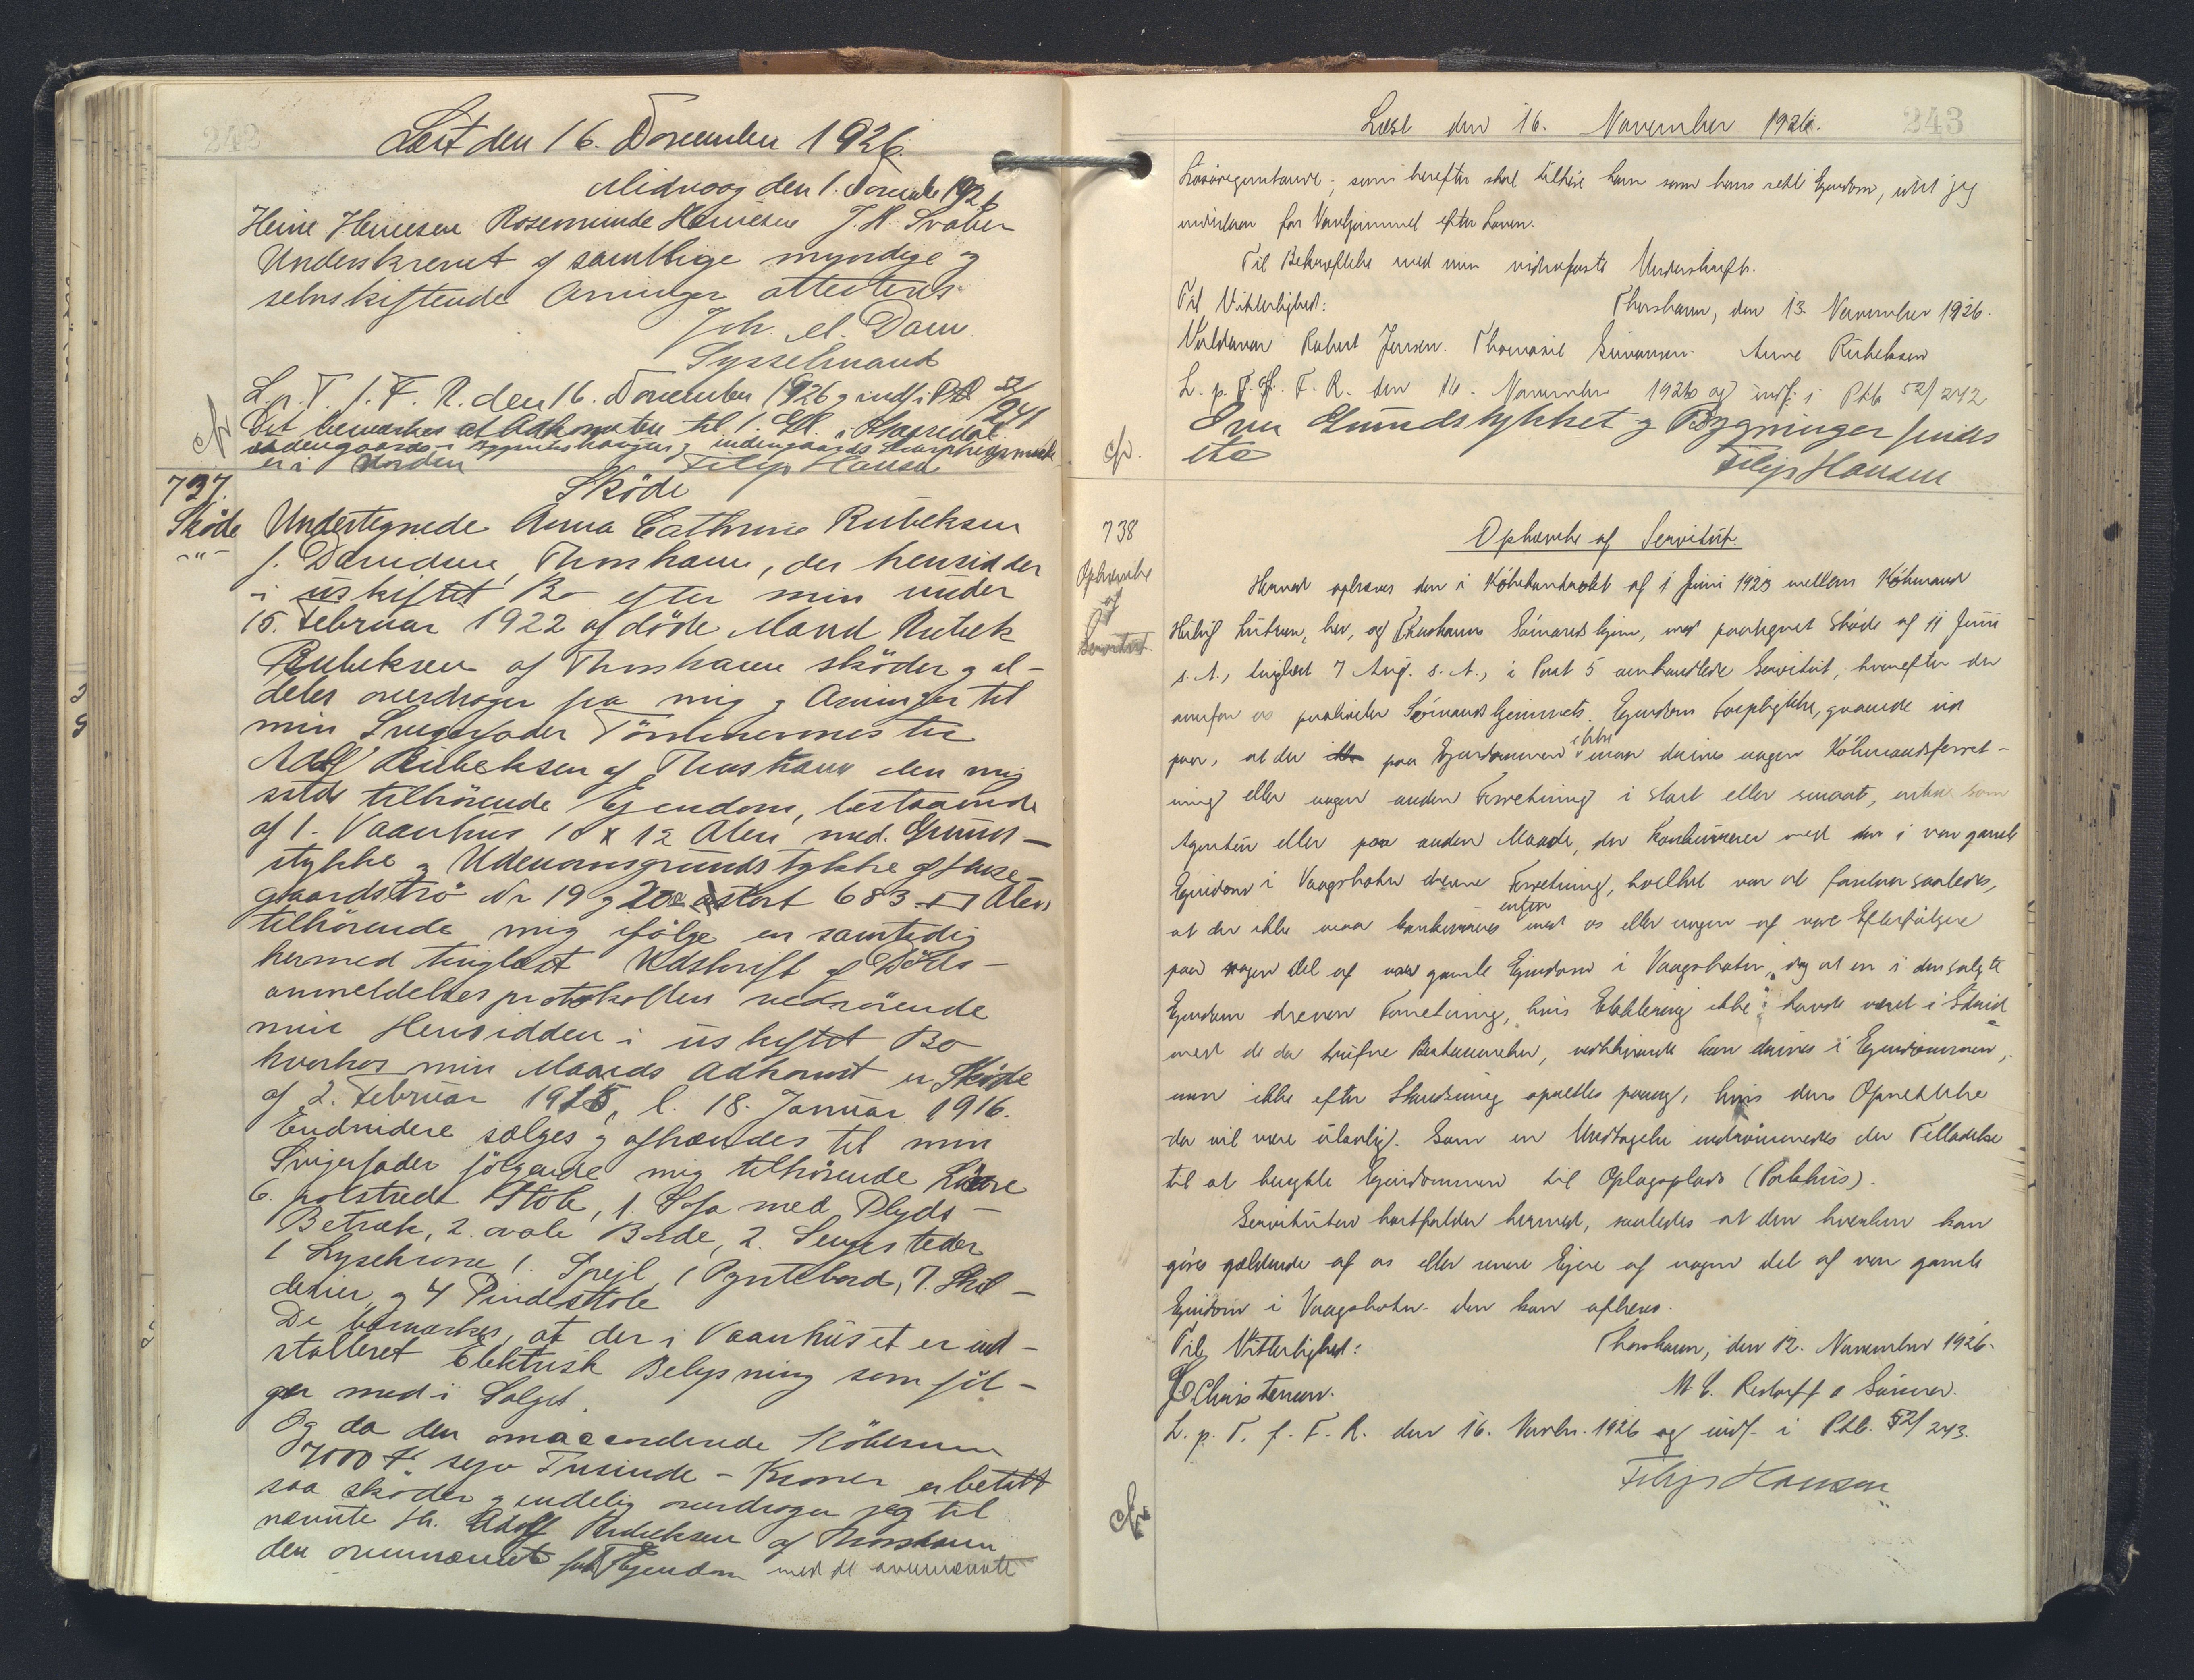 242
Læst den 16. November 1926.
Midvaag den 1. November 1926
Heine Heinesen Rosemunde Heinesen J. H.
Underskrevet af samtlige myndige og
selvskiftende Arvinger attesteres
Joh. M. Dam
Sysselmand
L. p. T. f. F. R. den 16. November 1926 og indf. i Ptb 52/241
Det bemærkes at Adkomsten til 1.
er i Orden Filip Hansen
737. Sköde
Sköde Undertegnede Anna Cathrine Rubeksen
-"- f. Davidsen, Thorshavn, der hensidder
i uskiftet Bo efter min under
15. Februar 1922 afdöde Mand Rubek
Rubeksen af Thorshavn sköder og al-
deles overdrager fra mig og Arvinger til
min Svigerfader Tömmermester
Adolf Rubeksen af Thorshavn den mig
selv tilhörende Ejendom, bestaaende
af 1. Vaanhus 10 x 12 Alen med Grund-
stykke og Udenomsgrundstykke af Huse-
gaardströ Nr 19 g stort 683 □ Alen
tilhörende mig ifölge en samtidig
hermed tinglæst Udskrift af Döds-
anmeldelsesprotokollen vedrörende
min Hensidden i uskiftet Bo
hvorhos min Mands Adkomst er Sköde
af 2. Februar 1915, l. 18. Januar 1916.
Endvidere sælges og afhændes til min
Svigerfader fölgende mig tilhörende Lösöre
6. polstrede Stole, 1. Sofa med Plyds-
Betræk, 2. ovale Borde, 2. Sengesteder
1 Lysekrone, 1. Spejl, 1 Pyntebord, 7. Skil-
derier, og 4 Pindestole
De bemærkes, at der i Vaanhuset er ind-
stalleret Elektrisk Belysning som föl-
ger med i Salget.
Og da den omaccorderede Köbesum
7000 Kr. syv Tusinde - Kroner er betalt
saa sköder og endelig overdrager jeg til
nævnte Hr. Adolf Rubeksen af Thorshavn
den ovennævnte Ejendom med de ovennævnte
243
Læst den 16. November 1926.
Lösöregenstande, som herefter skal tilhöre ham som hans rette Ejendom, idet jeg
indestaar for Vanhjemmel efter Loven.
Til Bekræftelse med min vidnefaste Underskrift.
Til Vitterlighed: Thorshavn, den 13. November 1926.
Valdemar Robert Jensen. Thomasie Simonsen. Anna Rubeksen
L. p. T. f. F. R. den 16. November 1926 og indf. i Ptb 52/242
Grundstykket og Bygninger findes
Filip Hansen
738 Ophævelse af Servitut.
Ophævelse af Servitut
Hermed ophæves den i Köbekontrakt af 1 Juni 1923 mellem Köbmand
her, og Thorshavns Sömandshjem, med paategnet Sköde af 11 Juni
s. A., tinglæst 7 Aug. s. A., i Post 5 omhandlede Servitut, hvorefter der
overfor os paahviler Sömandshjemmets Ejendom Forpligtelse, gaaende ud
paa, at der paa Ejendommen ikke maa drives nogen Köbmandsforret-
ning eller nogen anden Forretning i stort eller smaat, enten som
Agentur eller paa anden Maade, der konkurrerer med den i vor gamle
Ejendom i Vaagsbotn drevne Forretning, hvilket var at forstaa saaledes,
at der ikke maa konkurreres enten med os eller nogen af vore Efterfölgere
paa nogen Del af vor gamle Ejendom i Vaagsbotn, dog at en i den solgte
Ejendom dreven Forretning, hvis Etablering ikke havde været i Strid
med de da trufne Bestemmelser, vedblivende kan drives i Ejendommen,
men ikke efter Standsning oprettes paany, hvis dens Oprettelse
da vil være ulovlig. Som en Undtagelse indrömmedes der Tilladelse
til at benytte Ejendommen til Oplagsplads (Pakhus).
Servituten bortfalder hermed, saaledes at den hverken kan
göres gældende af os eller senere Ejere af nogen Del af vor gamle
Ejendom i Vaagsbotn. Den kan aflyses.
Til Vitterlighed: Thorshavn, den 12. November 1926.
Christensen. M. C. Restorff & Sönner.
L. p. T. f. F. R. den 16. Novbr. 1926 og indf. i Ptb. 52/243.
Filip Hansen